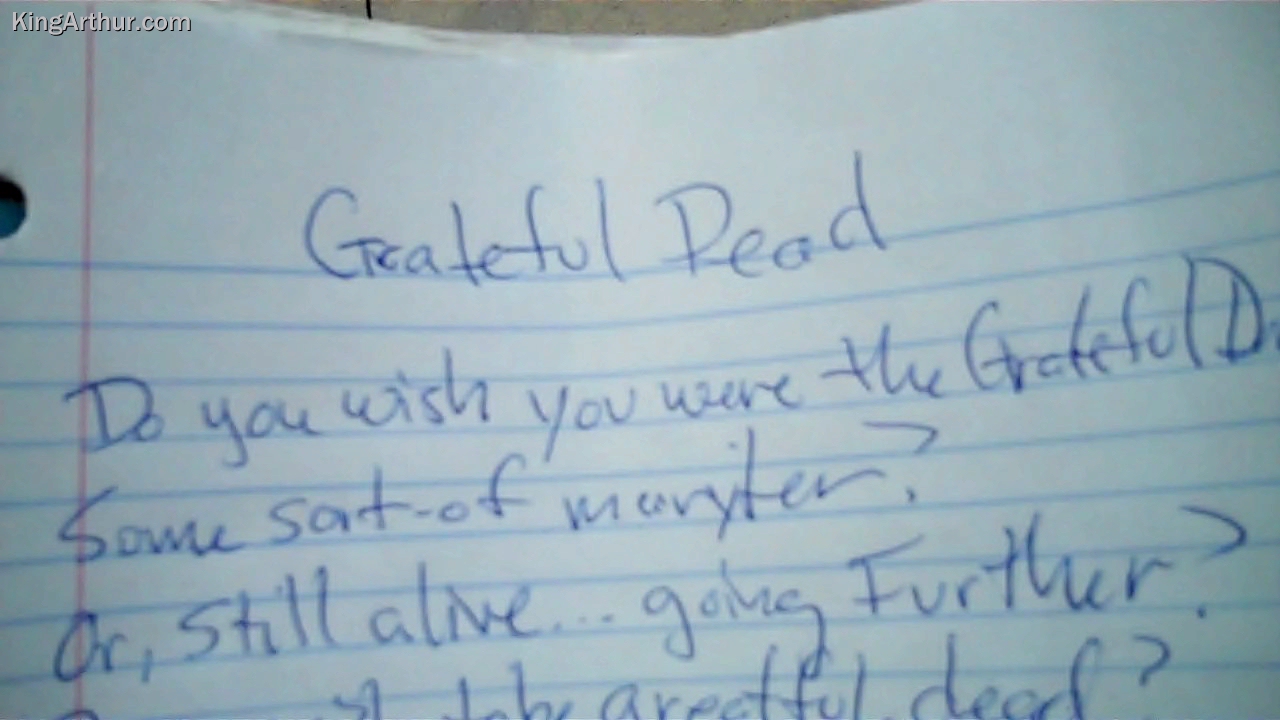 KingArthur.com
Grateful Dead
Do you wish you were the Grateful D
Some sort-of maryter?
Or, still alive... going Further?
to be greatful dead?